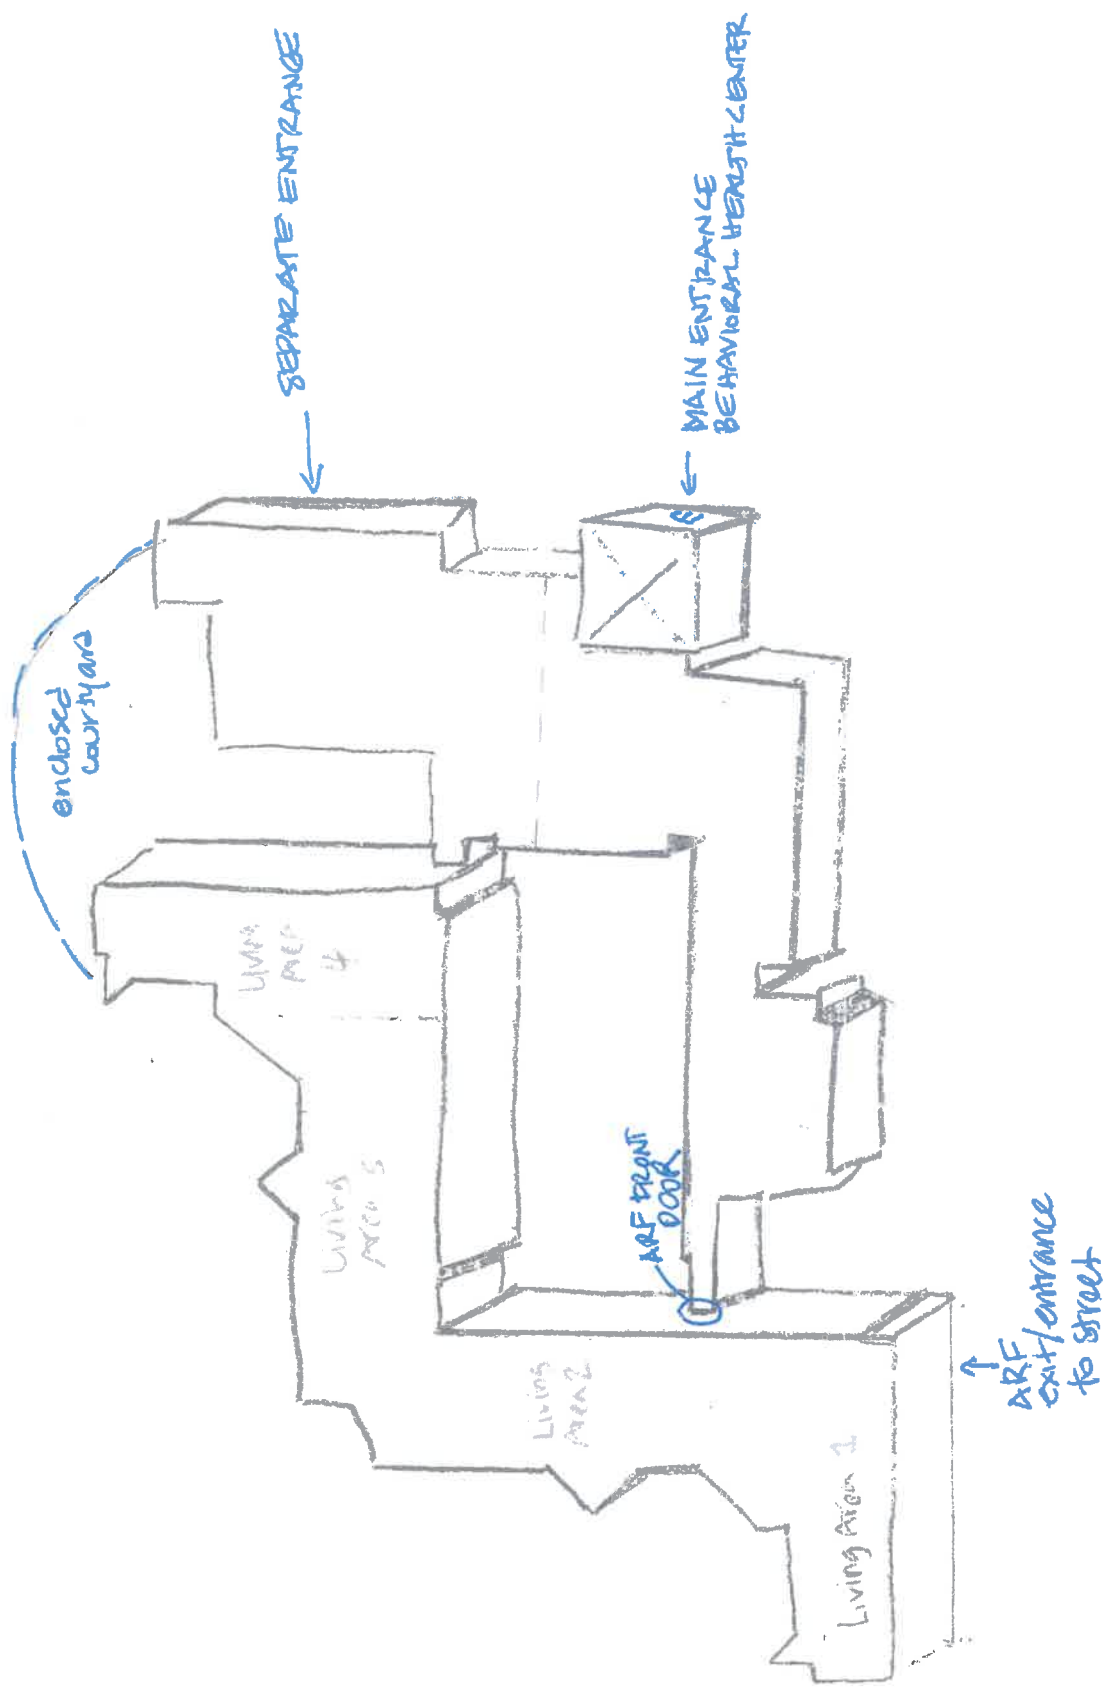 SEPARATE ENTRANCE
MAIN ENTRANCE
BEHAVIORAL HEALTH CENTER
enclosed
courtyard
Living
Area
4
Living
Area
Living
Area 2
Living Area 1
ARF FRONT
DOOR
ARF
exit/entrance
to street